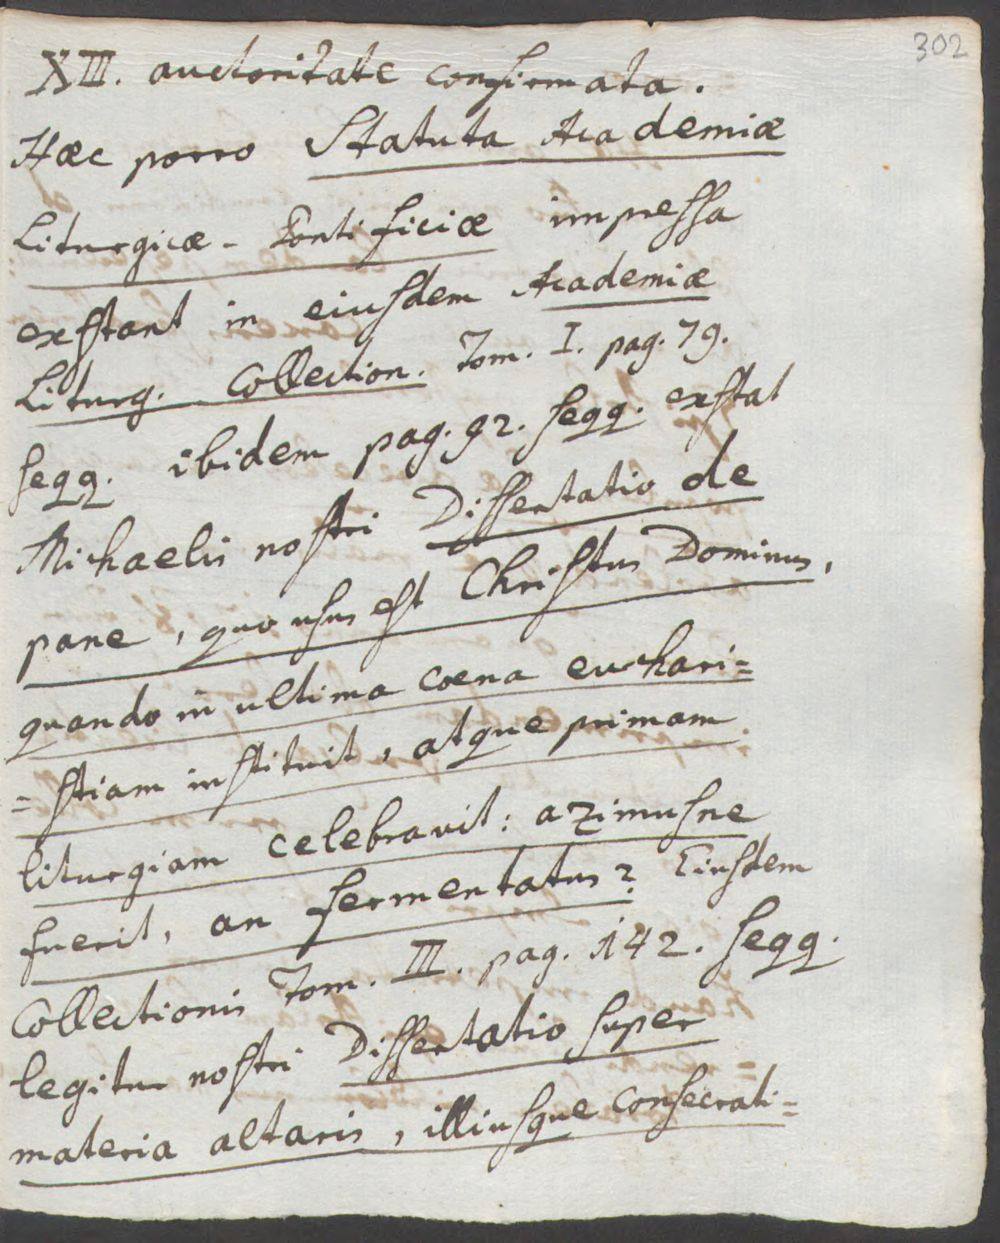 302
XIII. auctoritate confirmata.
Haec porro Statuta Academiæ
Liturgicæ-Pontificiæ impressa
exstant in eiusdem Academiæ
Liturg. Collection. Tom. I. pag. 79.
seqq. ibidem pag. 92. seqq. exstat
Michaelis nostri Dissertatio de
pane, quo usus est Christus Dominus,
quando in ultima coena euchari=
=stiam instituit, atque primam
liturgiam celebravit: azimusne
fuerit, an fermentatus? Eiusdem
Collectionis Tom. III. pag. 142. seqq.
legitur nostri Dissertatio super
materia altaris, illiusque consecrati=